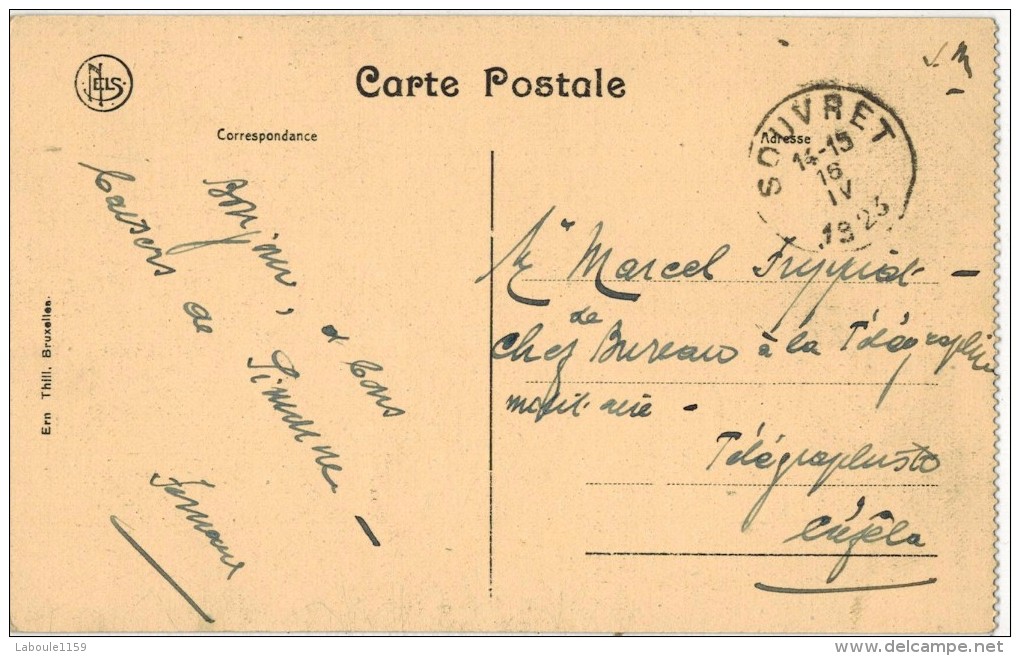 NELS
Carte Postale
Correspondance
Adresse
SOUVRET
14-15
16
IV
1923
Bonjour, & bons
baisers de Simonne -
Mr Marcel
Chef de Bureau à la Télégraphie
militaire -
Télégraphiste
Ern Thill. Bruxelles.
Laboule1159
delcampe.net